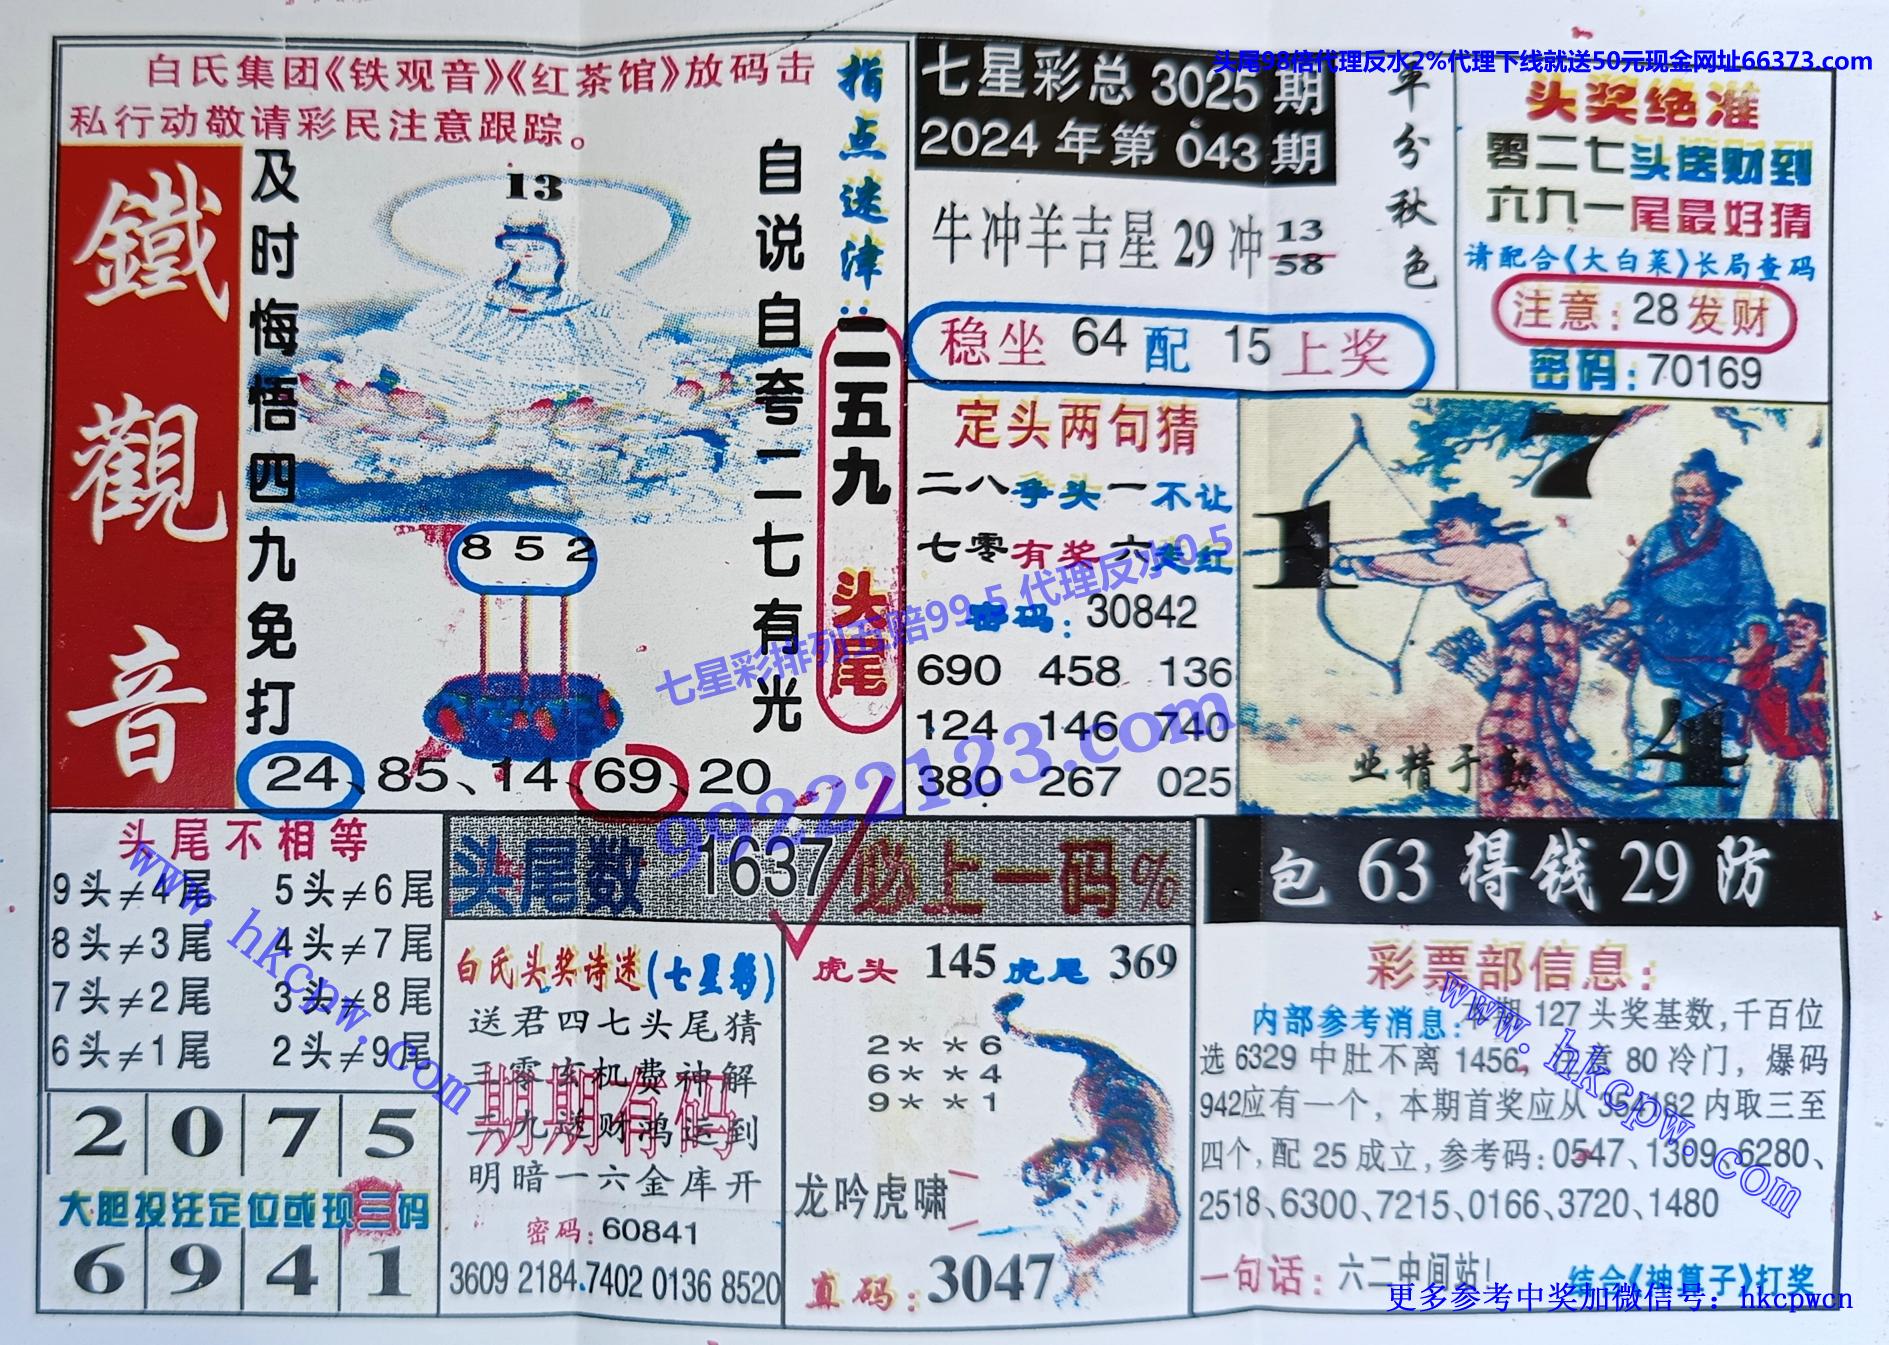 头尾98倍代理反水2%代理下线就送50元现金网址66373.com
白氏集团《铁观音》《红茶馆》放码击
私行动敬请彩民注意跟踪。
鐵觀音
及时悔悟四九免打
13
自说自夸二七有光
852
24、85、14、69、20
指点迷津：
二五九
头尾
七星彩总 3025 期
2024 年第 043 期
牛冲羊吉星 29 冲 13 58
稳坐 64 配 15 上奖
平分秋色
头奖绝准
零二七头送财到
六九一尾最好猜
请配合《大白菜》长局查码
注意：28发财
密码：70169
定头两句猜
二八争头一不让
七零有奖六走红
密码：30842
690 458 136
124 146 740
380 267 025
1
7
4
业精于勤
七星彩排列五赔99.5 代理反水0.5
99222123.com
头尾不相等
9头≠4尾 5头≠6尾
8头≠3尾 4头≠7尾
7头≠2尾 3头≠8尾
6头≠1尾 2头≠9尾
www.hkcpw.com
2 0 7 5
大胆投注定位或现三码
6 9 4 1
头尾数 1637 必上一码%
白氏头奖诗迷(七星彩)
送君四七头尾猜
三零玄机费神解
二九送财鸿运到
明暗一六金库开
期期有码
密码：60841
3609 2184.7402 0136 8520
虎头 145 虎尾 369
2＊ ＊6
6＊ ＊4
9＊ ＊1
龙吟虎啸
真码：3047
包 63 得钱 29 防
彩票部信息：
内部参考消息：本期 127 头奖基数,千百位
选 6329 中肚不离 1456，注意 80 冷门，爆码
942应有一个，本期首奖应从 354182 内取三至
四个,配 25 成立,参考码:0547、1309、6280、
2518、6300、7215、0166、3720、1480
www.hkcpw.com
一句话：六二中间站!
结合《神算子》打奖
更多参考中奖加微信号：hkcpwcn